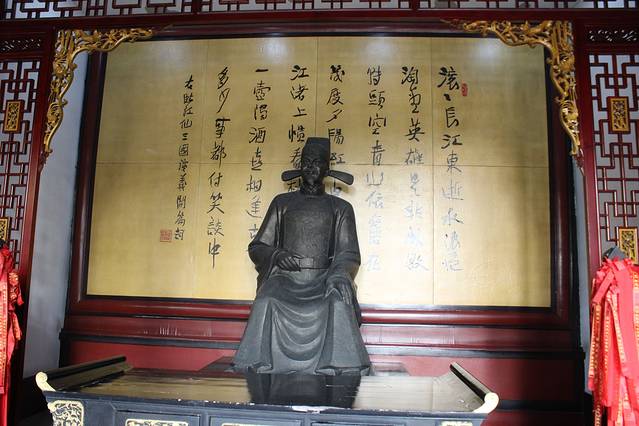 滚〻長江東逝水浪花
淘盡英雄是非成敗
轉頭空青山依舊在
幾度夕陽紅白
江渚上慣看
一壺濁酒喜相逢古
多少事都付笑談中
右臨江仙三國演義開篇詞